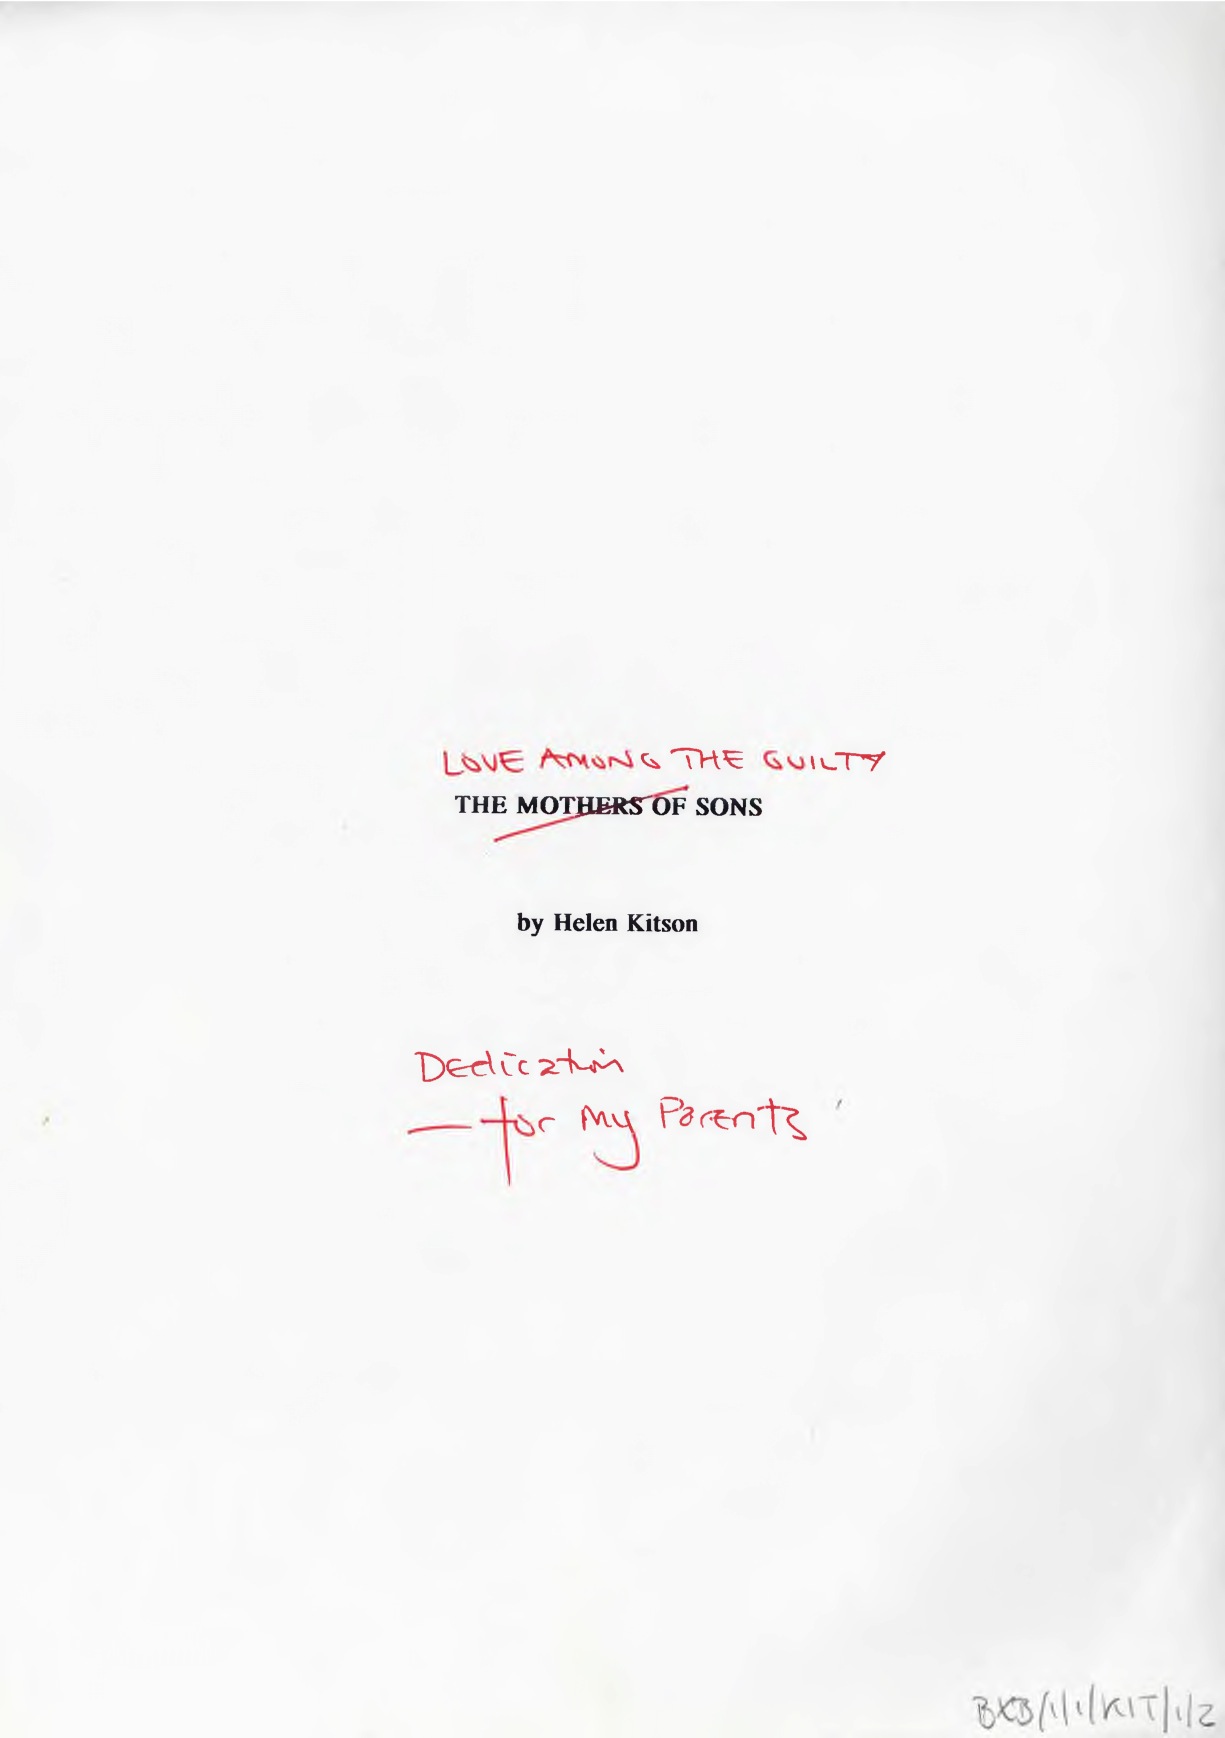 LOVE AMONG THE GUILTY
THE MOTHERS OF SONS
by Helen Kitson
Dedication
— for My Parents
BXB/1/1/KIT/1/2